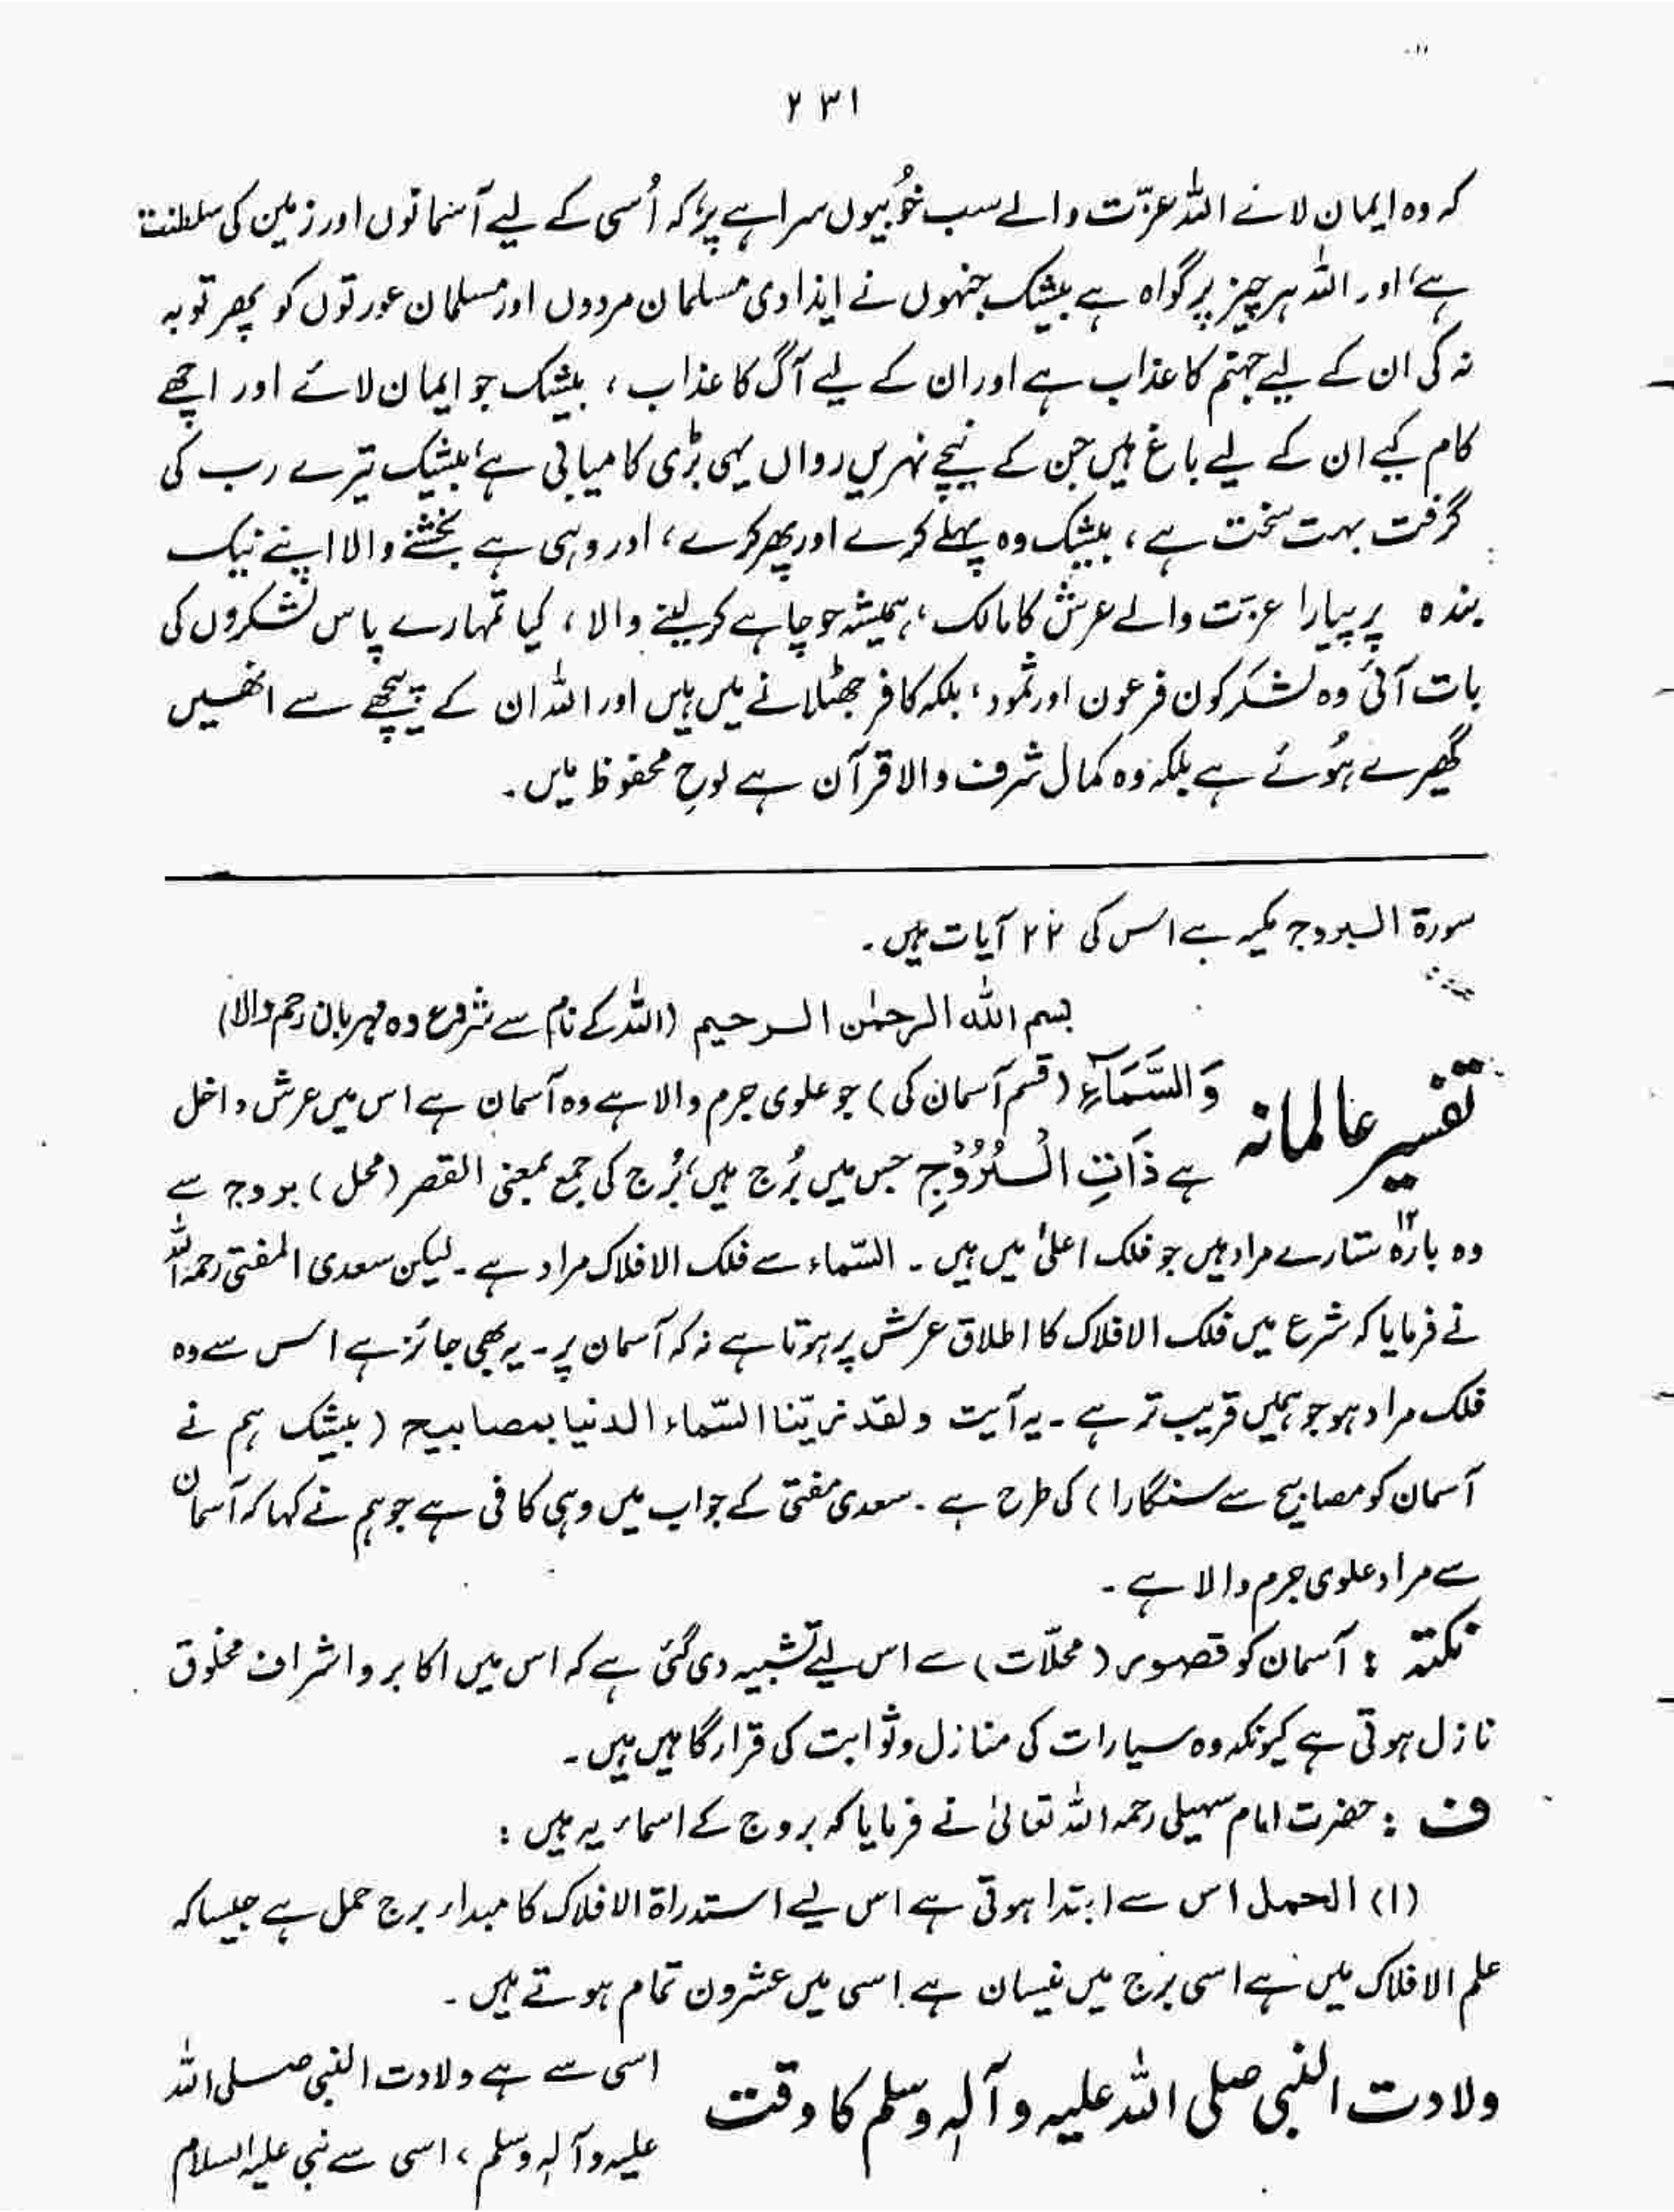 ۲۳۱
کہ وہ ایمان لانے اللہ عزّت والے سب خوُبیوں سراہے پر، کہ اُسی کے لیے آسمانوں اور زمین کی سلطنت
ہے، اور اللہ ہر چیز پر گواہ ہے بیشک جنہوں نے ایذا دی مسلمان مردوں اور مسلمان عورتوں کو پھر توبہ
نہ کی ان کے لیے جہنم کا عذاب ہے اور ان کے لیے آگ کا عذاب ، بیشک جو ایمان لائے اور اچھے
کام کیے ان کے لیے باغ ہیں جن کے نیچے نہریں رواں یہی بڑی کامیابی ہے، بیشک تیرے رب کی
گرفت بہت سخت ہے ، بیشک وہ پہلے کرے اور پھر کرے ، اور وہی ہے بخشنے والا اپنے نیک
بندہ پر پیارا عزّت والے عرش کا مالک ، ہمیشہ جو چاہے کر لینے والا ، کیا تمہارے پاس لشکروں کی
بات آئی وہ لشکر کون فرعون اور ثمود ، بلکہ کافر جھٹلانے میں ہیں اور اللہ ان کے پیچھے سے انھیں
گھیرے ہوُئے ہے بلکہ وہ کمال شرف والا قرآن ہے لوحِ محفوظ میں ۔
سورۃ البروج مکیہ ہے اس کی ۲۲ آیات ہیں ۔
بسم اللہ الرحمٰن الرحیم (اللہ کے نام سے شروع وہ مہربان رحم والا)
تفسیر عالمانہ
وَالسَّمَآءِ (قسم آسمان کی) جو علوی جرم والا ہے وہ آسمان ہے اس میں عرش داخل
ہے ذَاتِ الْبُرُوْجِ جس میں بُرج ہیں، بُرج کی جمع بمعنی القصر (محل) بروج سے
وہ بارہ۱۲ ستارے مراد ہیں جو فلک اعلیٰ میں ہیں ۔ السّماء سے فلک الافلاک مراد ہے ۔ لیکن سعدی المفتی رحمہ اللہ
نے فرمایا کہ شرع میں فلک الافلاک کا اطلاق عرش پر ہوتا ہے نہ کہ آسمان پر ۔ یہ بھی جائز ہے اس سے وہ
فلک مراد ہو جو ہمیں قریب تر ہے ۔ یہ آیت ولقد زیّنا السّماء الدنیا بمصابیح (بیشک ہم نے
آسمان کو مصابیح سے سنگارا) کی طرح ہے ۔ سعدی مفتی کے جواب میں وہی کافی ہے جو ہم نے کہا کہ آسمان
سے مراد علوی جرم والا ہے ۔
نکتہ : آسمان کو قصور (محلّات) سے اس لیے تشبیہ دی گئی ہے کہ اس میں اکابر و اشراف مخلوق
نازل ہوتی ہے کیونکہ وہ سیارات کی منازل و ثوابت کی قرارگاہیں ہیں ۔
ف : حضرت امام سہیلی رحمہ اللہ تعالیٰ نے فرمایا کہ بروج کے اسماء یہ ہیں :
(۱) الحمل اس سے ابتدا ہوتی ہے اس لیے استدراۃ الافلاک کا مبداء برج حمل ہے جیسا کہ
علم الافلاک میں ہے اسی بُرج میں نیسان ہے اسی میں عشرون تمام ہوتے ہیں ۔
ولادت النبی صلی اللہ علیہ وآلہٖ وسلم کا وقت
اسی سے ہے ولادت النبی صلی اللہ
علیہ وآلہٖ وسلم ، اسی سے نبی علیہ السلام